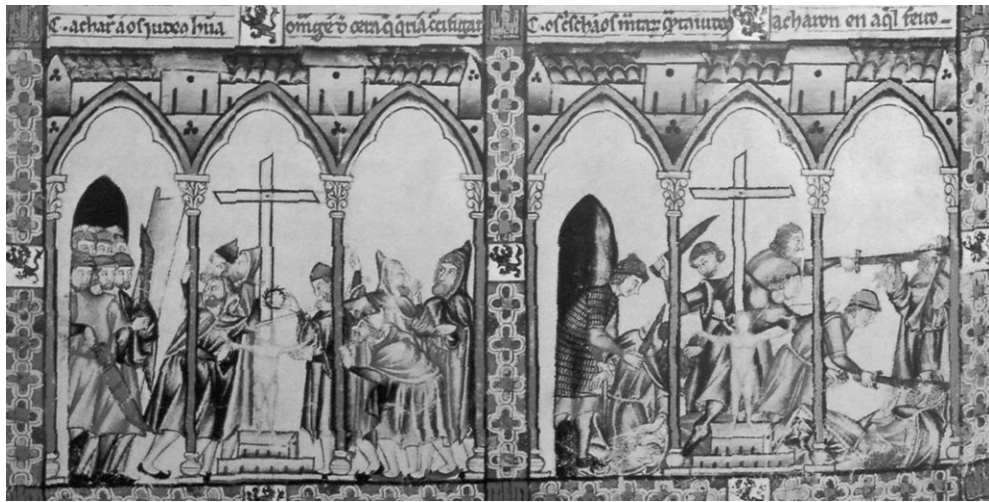 C. acharã aos judeos hũa omagẽ d cera q̃ q̃riã crucifigar
C. os crischãos matarõ qntos iudeus acharon en aq̃l feito